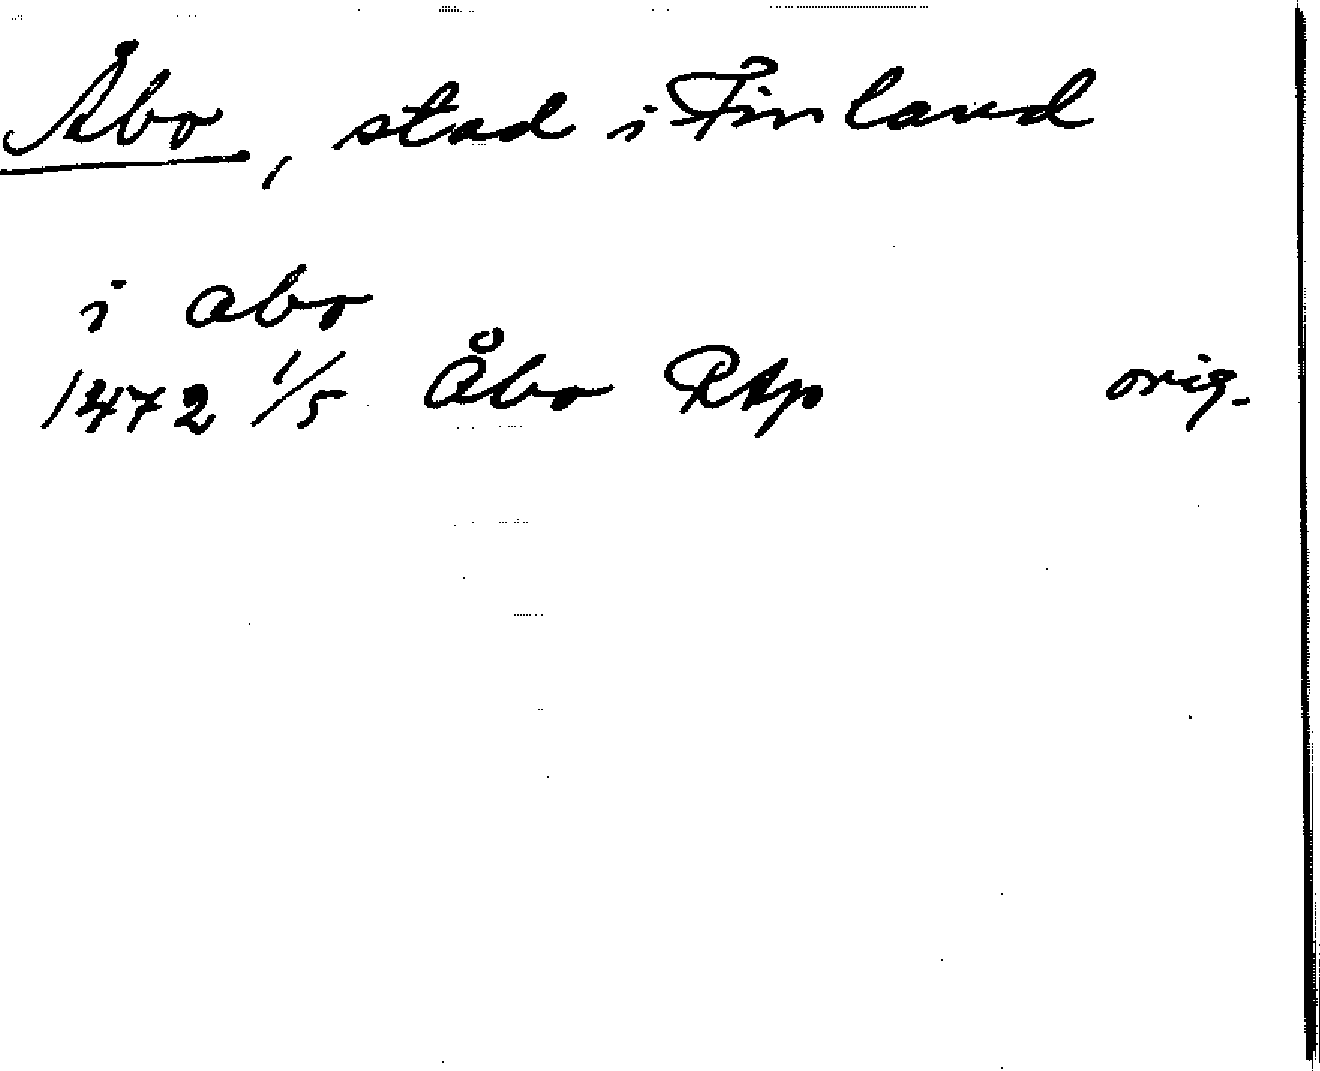 Åbo, stad i Finland
i abo
1472 1/5 Åbo RAp orig.